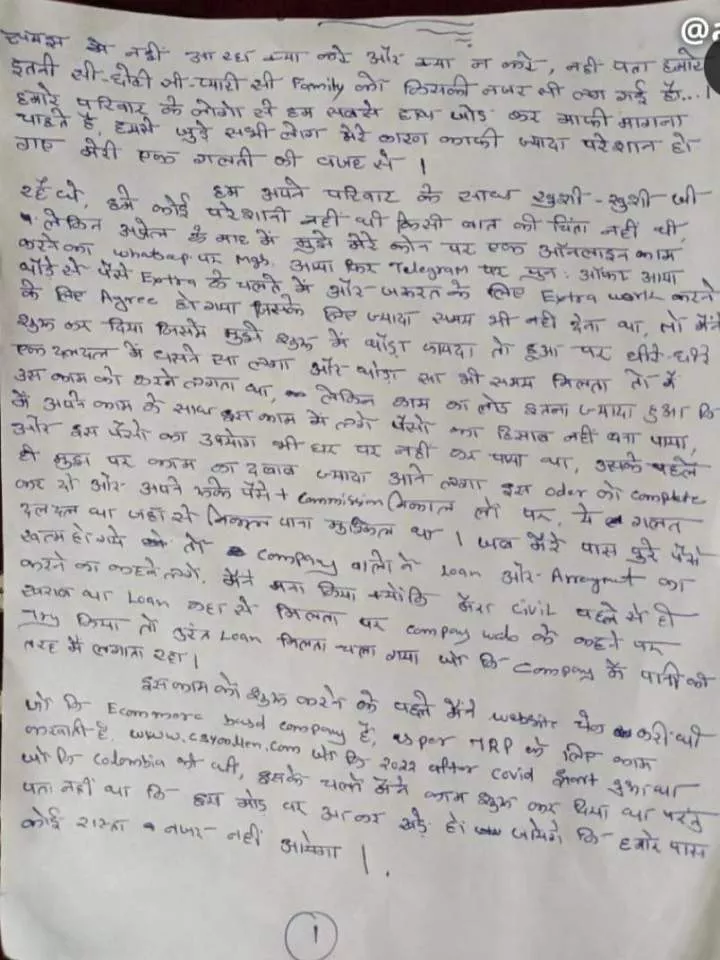 @
समझ में नहीं आ रहा क्या करे और क्या न करे, नहीं पता हमारे
इतनी सी-छोटी सी-प्यारी सी Family को किसकी नजर सी लग गई है...।
हमारे परिवार के लोगो से हम सबसे हाथ जोड़ कर माफी मांगना
चाहते है, हमसे जुड़े सभी लोग मेरे कारण काफी ज्यादा परेशान हो
गाए मेरी एक गलती की वजह से।
हम अपने परिवार के साथ खुशी-खुशी जी
रहे थे, हमे कोई परेशानी नहीं थी किसी बात की चिंता नहीं थी
लेकिन अप्रेल के माह में मुझे मेरे फोन पर एक ऑनलाइन काम
करने का whatsap पर Msg. आया फिर Telegram पर पुन: ऑफर आया
थोड़े से पैसे Extra के चलते में और जरूरत के लिए Extra work करने
के लिए Agree हो गया जिसके लिए ज्यादा समय भी नही देना था, तो मैंने
शुरू कर दिया जिसमे मुझे शुरू में थोड़ा फायदा तो हुआ पर धीरे-धीरे
एक दलदल में धसने सा लगा और थोड़ा सा भी समय मिलता तो में
उस काम को करने लगता था, लेकिन काम का लोड इतना ज्यादा हुआ कि
में अपने काम के साथ इस काम में लगे पैसों का हिसाब नहीं बना पाया,
और इस पैसों का उपयोग भी घर पर नहीं कर पाया था, उसके पहले
ही मुझ पर काम का दबाव ज्यादा आने लगा इस oder को complete
कर दो और अपने रुके पैसे + Commission निकाल लो पर, ये गलत
दलदल था जहाँ से निकल पाना मुश्किल था। जब मेरे पास पुरे पैसे
खत्म हो गये तो company वालो ने Loan और Arrangment का
करने का कहने लगे. मैंने मना किया क्योंकि मेरा Civil पहले से ही
खराब था Loan कहा से मिलता पर Company walo के कहने पर
Try किया तो तुरंत Loan मिलता चला गया जो कि Company में पानी की
तरह में लगाता रहा।
इस काम को शुरू करने के पहले मैंने website चेक करी थी
जो कि Ecommorc basd company है, as per TRP के लिए काम
करवाती है. जो कि 2022 after Covid start हुआ था
जो कि Colombia की थी, इसके चलते मैंने काम शुरू कर दिया था परंतु
पता नहीं था कि इस मोड़ पर आकर खड़े हो जायेगे कि हमारे पास
कोई रास्ता नजर नहीं आयेगा।
1